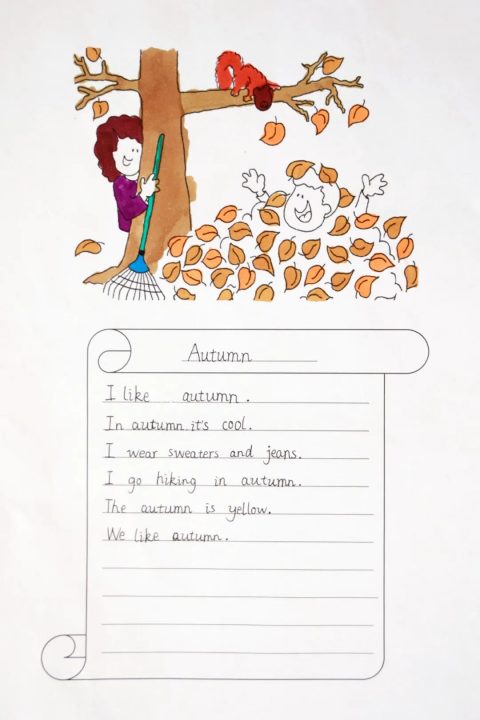 Autumn
I like autumn.
In autumn it's cool.
I wear sweaters and jeans.
I go hiking in autumn.
The autumn is yellow.
We like autumn.